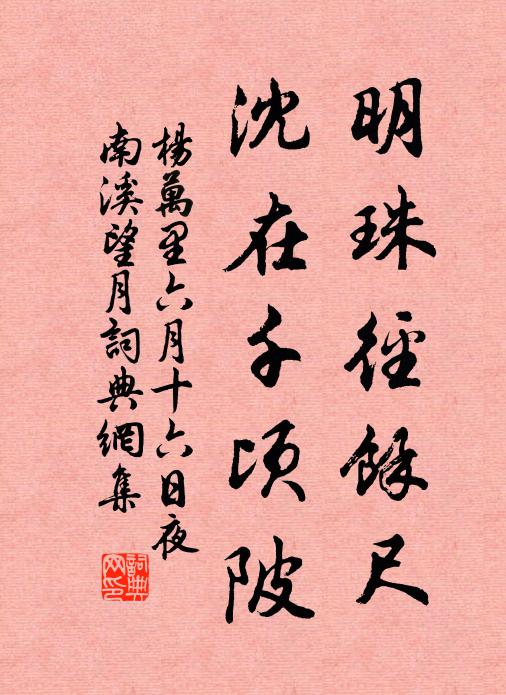 明珠徑餘尺
沈在千頃陂
楊萬里六月十六日夜
南溪望月詞典網集
詞典
网印